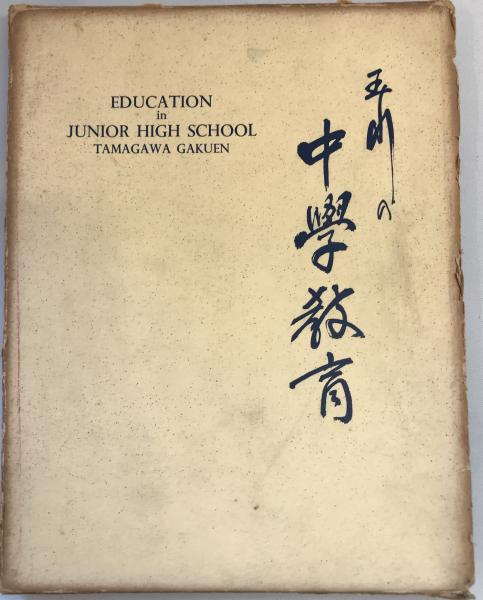 EDUCATION
in
JUNIOR HIGH SCHOOL
TAMAGAWA GAKUEN
玉川の
中學教育